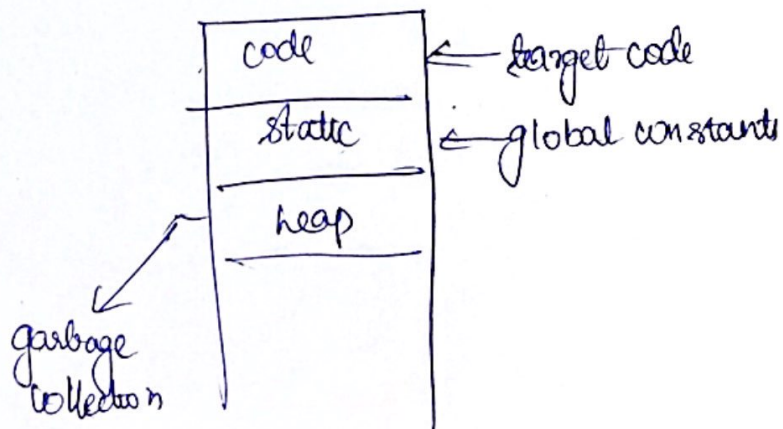 code
target code
static
global constants
heap
garbage
collection